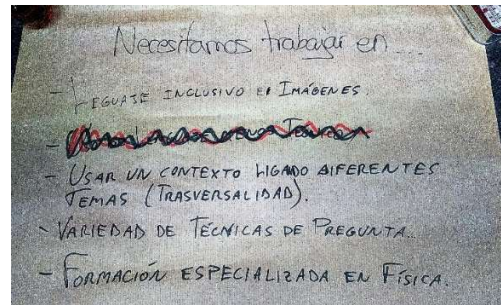 Necesitamos trabajar en...
- LEGUAJE INCLUSIVO EN IMÁGENES.
- USAR UN CONTEXTO LIGADO DIFERENTES
TEMAS (TRASVERSALIDAD).
- VARIEDAD DE TÉCNICAS DE PREGUNTA.
- FORMACIÓN ESPECIALIZADA EN FÍSICA.